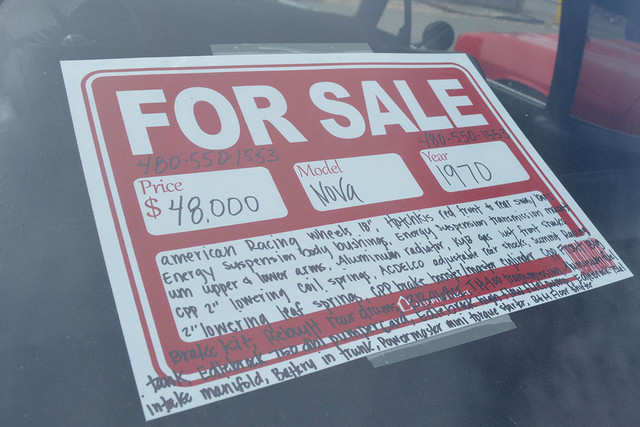 FOR SALE
480-550-1553 480-550-1553
Price Model Year
$ 48,000 Nova 1970
american Racing wheels 18" Hotchkis red front & rear sway
Energy suspension body bushings, Energy suspension transmission
um upper & lower arms, Aluminum radiator KYB gas front shocks
CPP 2" lowering coil springs, ACDELCO adjustable rear shocks, Summit Racing
2" lowering leaf springs CPP brake booster/master cylinder
Brake kit, Rebuilt rear drums, TH400 transmission
tank Edlebrock
intake manifold, Battery in trunk, Powermaster mini torque starter, B&M Floor Shifter